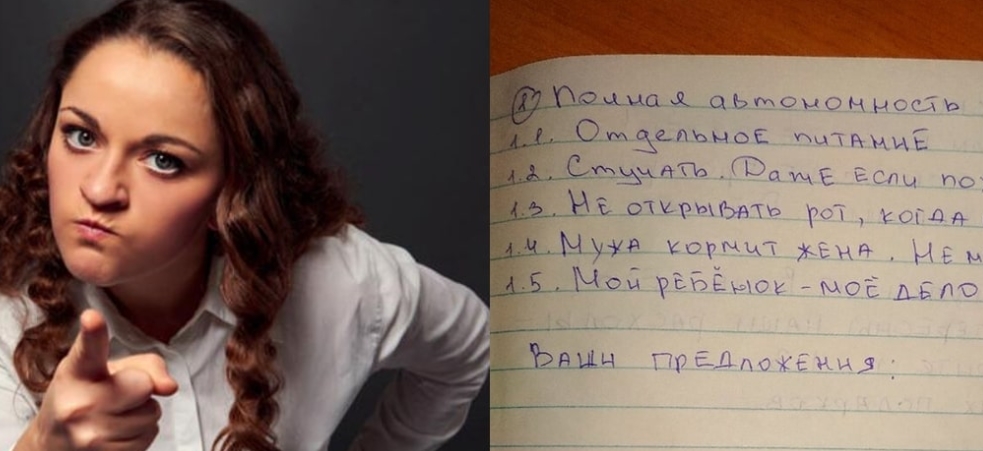 8) Полная автономность
1.1. Отдельное питание
1.2. Стучать. Даже если по
1.3. Не открывать рот, когда
1.4. Мужа кормит жена. Не м
1.5. Мой ребёнок - моё дело
Ваши предложения: